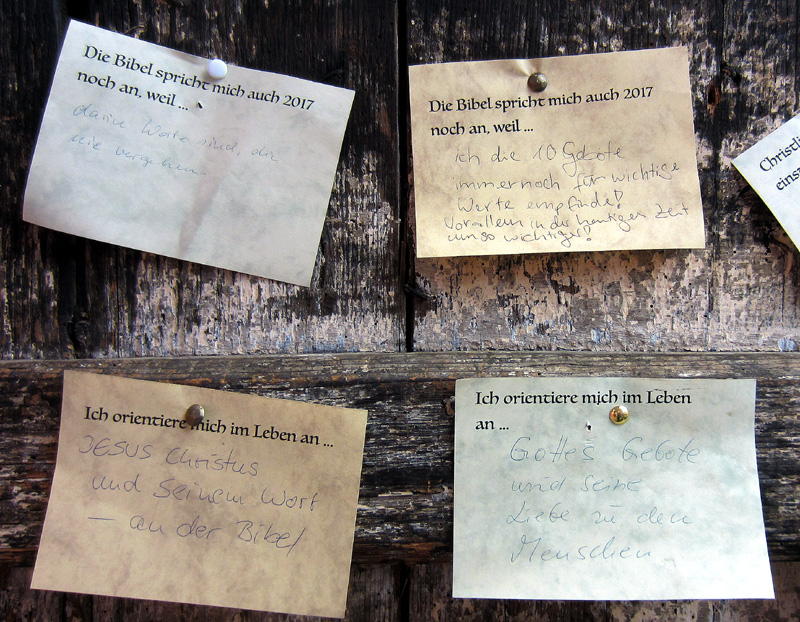 Die Bibel spricht mich auch 2017
noch an, weil ...
darin Worte sind, die
nie vergehen.
Die Bibel spricht mich auch 2017
noch an, weil ...
ich die 10 Gebote
immer noch für wichtige
Werte empfinde!
Vorallem in der heutigen Zeit
umso wichtiger!
Christli
eins
Ich orientiere mich im Leben an ...
JESUS Christus
und seinem Wort
– an der Bibel
Ich orientiere mich im Leben
an ...
Gottes Gebote
und seine
Liebe zu den
Menschen